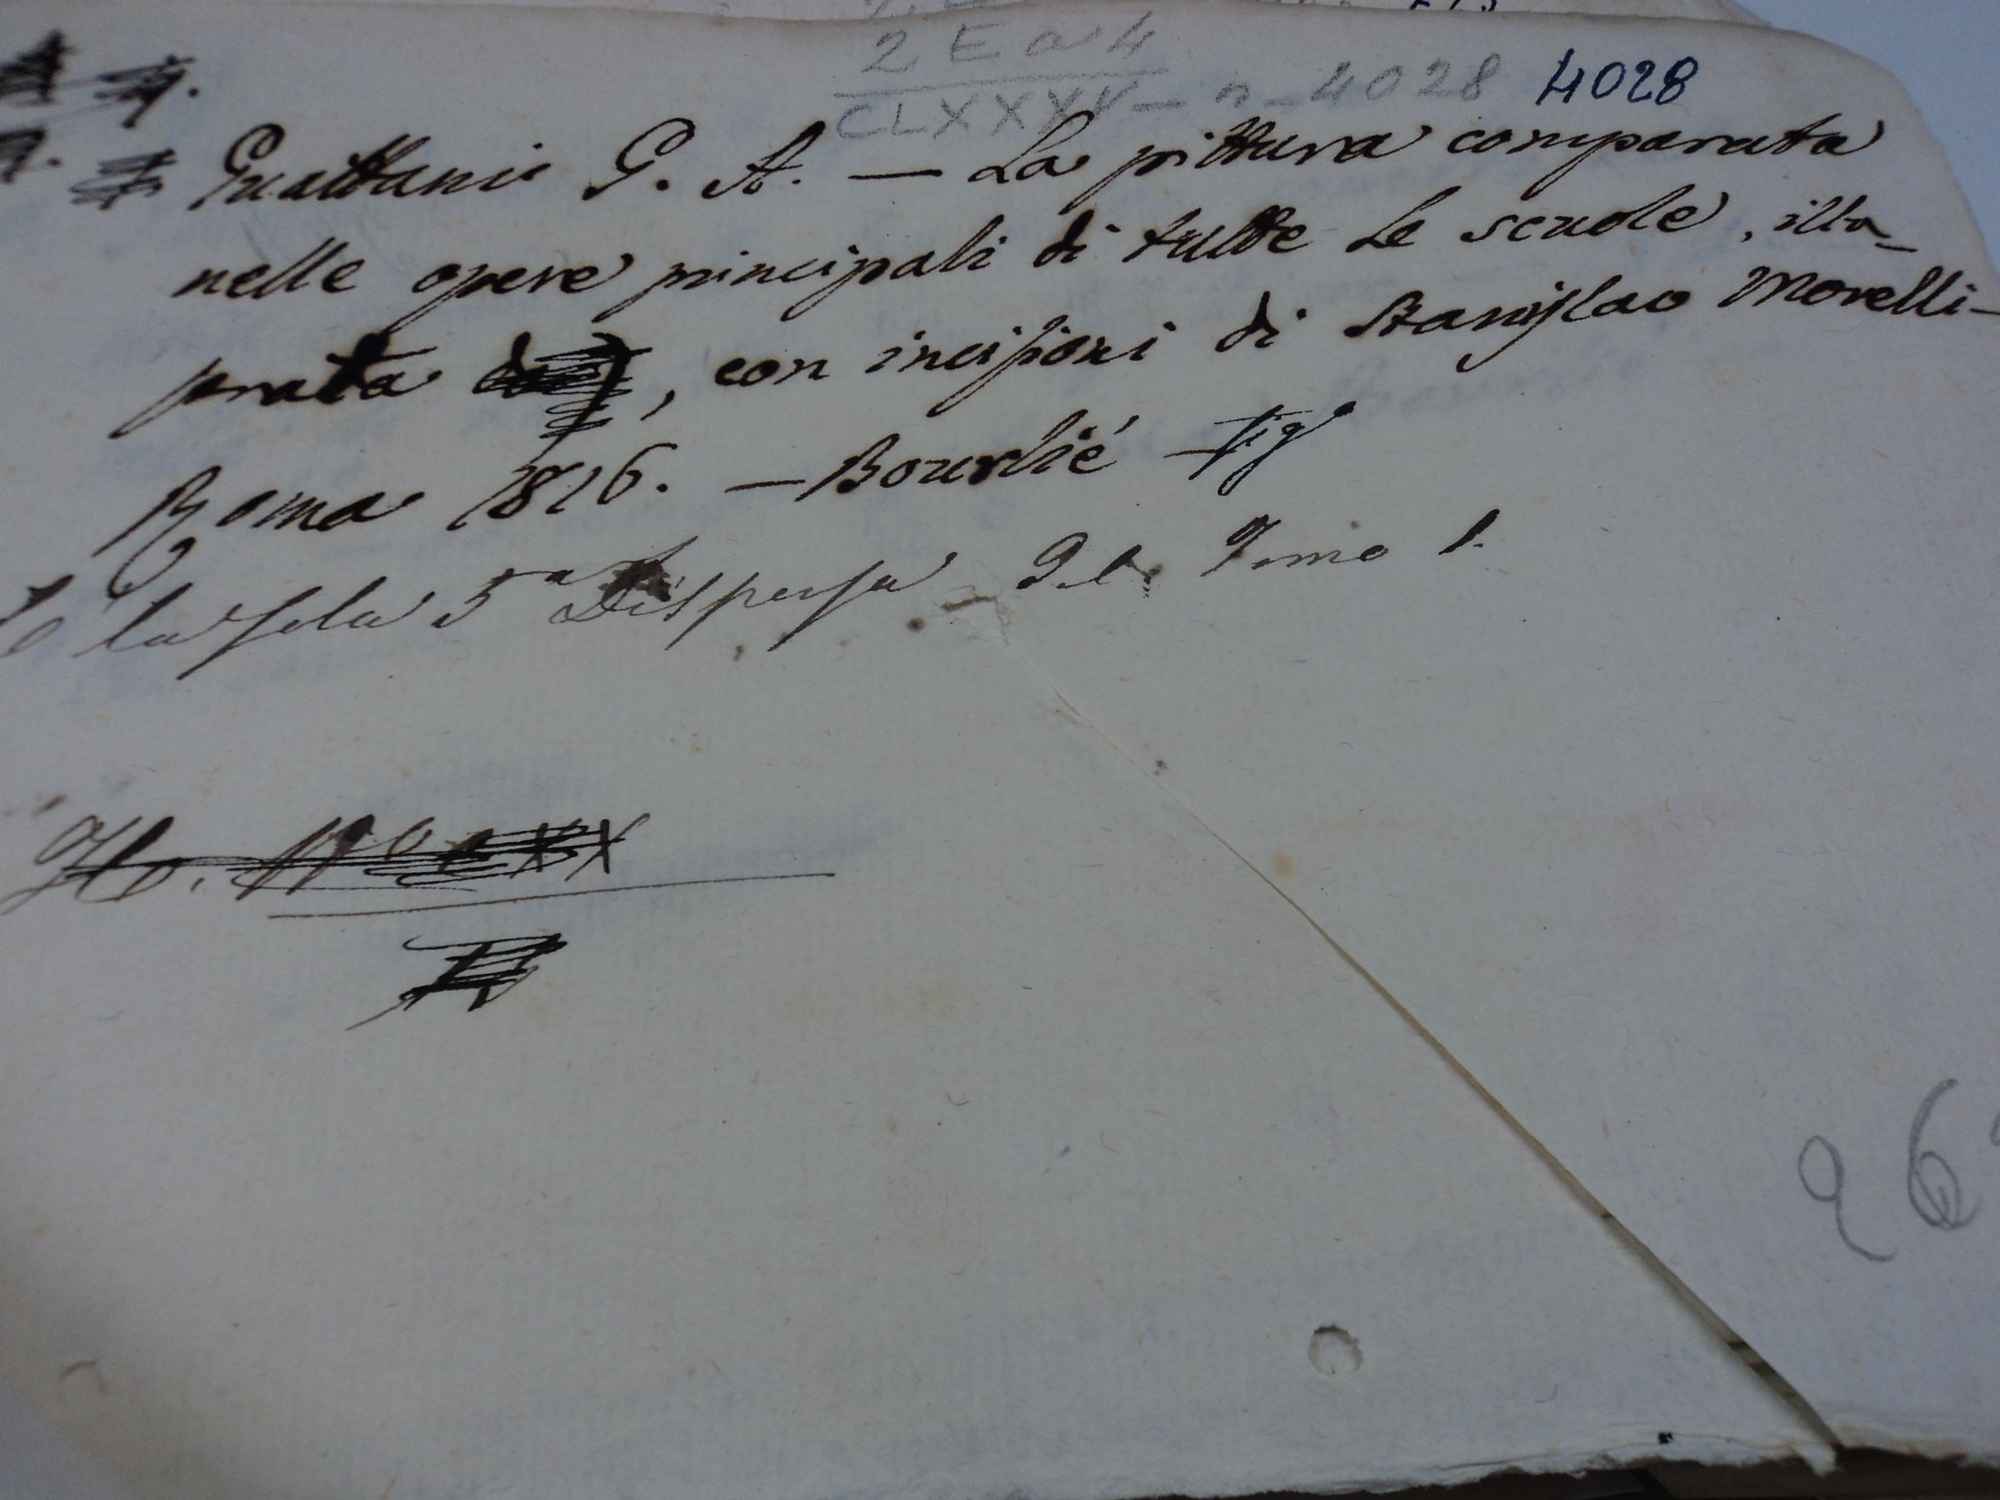 2 E a 4
CLXXXV - n - 4028 4028
Guattani G. A. — La pittura comparata
nelle opere principali di tutte le scuole, illu-
prata, con incisioni di Stanislao Morelli-
Roma 1816. — Bourlié fig
la sola 5ª Dispensa del Tomo 1.
26